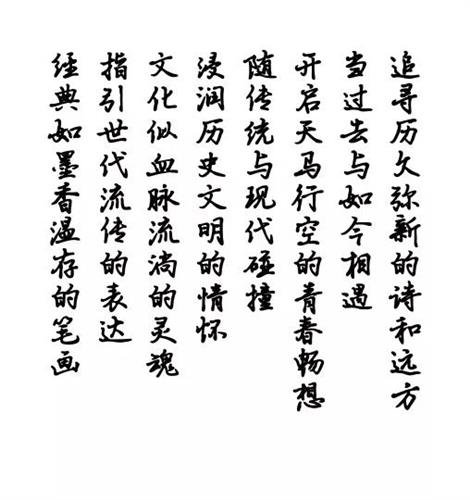 经典如墨香温存的笔画
指引世代流传的表达
文化似血脉流淌的灵魂
浸润历史文明的情怀
随传统与现代碰撞
开启天马行空的青春畅想
当过去与如今相遇
追寻历久弥新的诗和远方